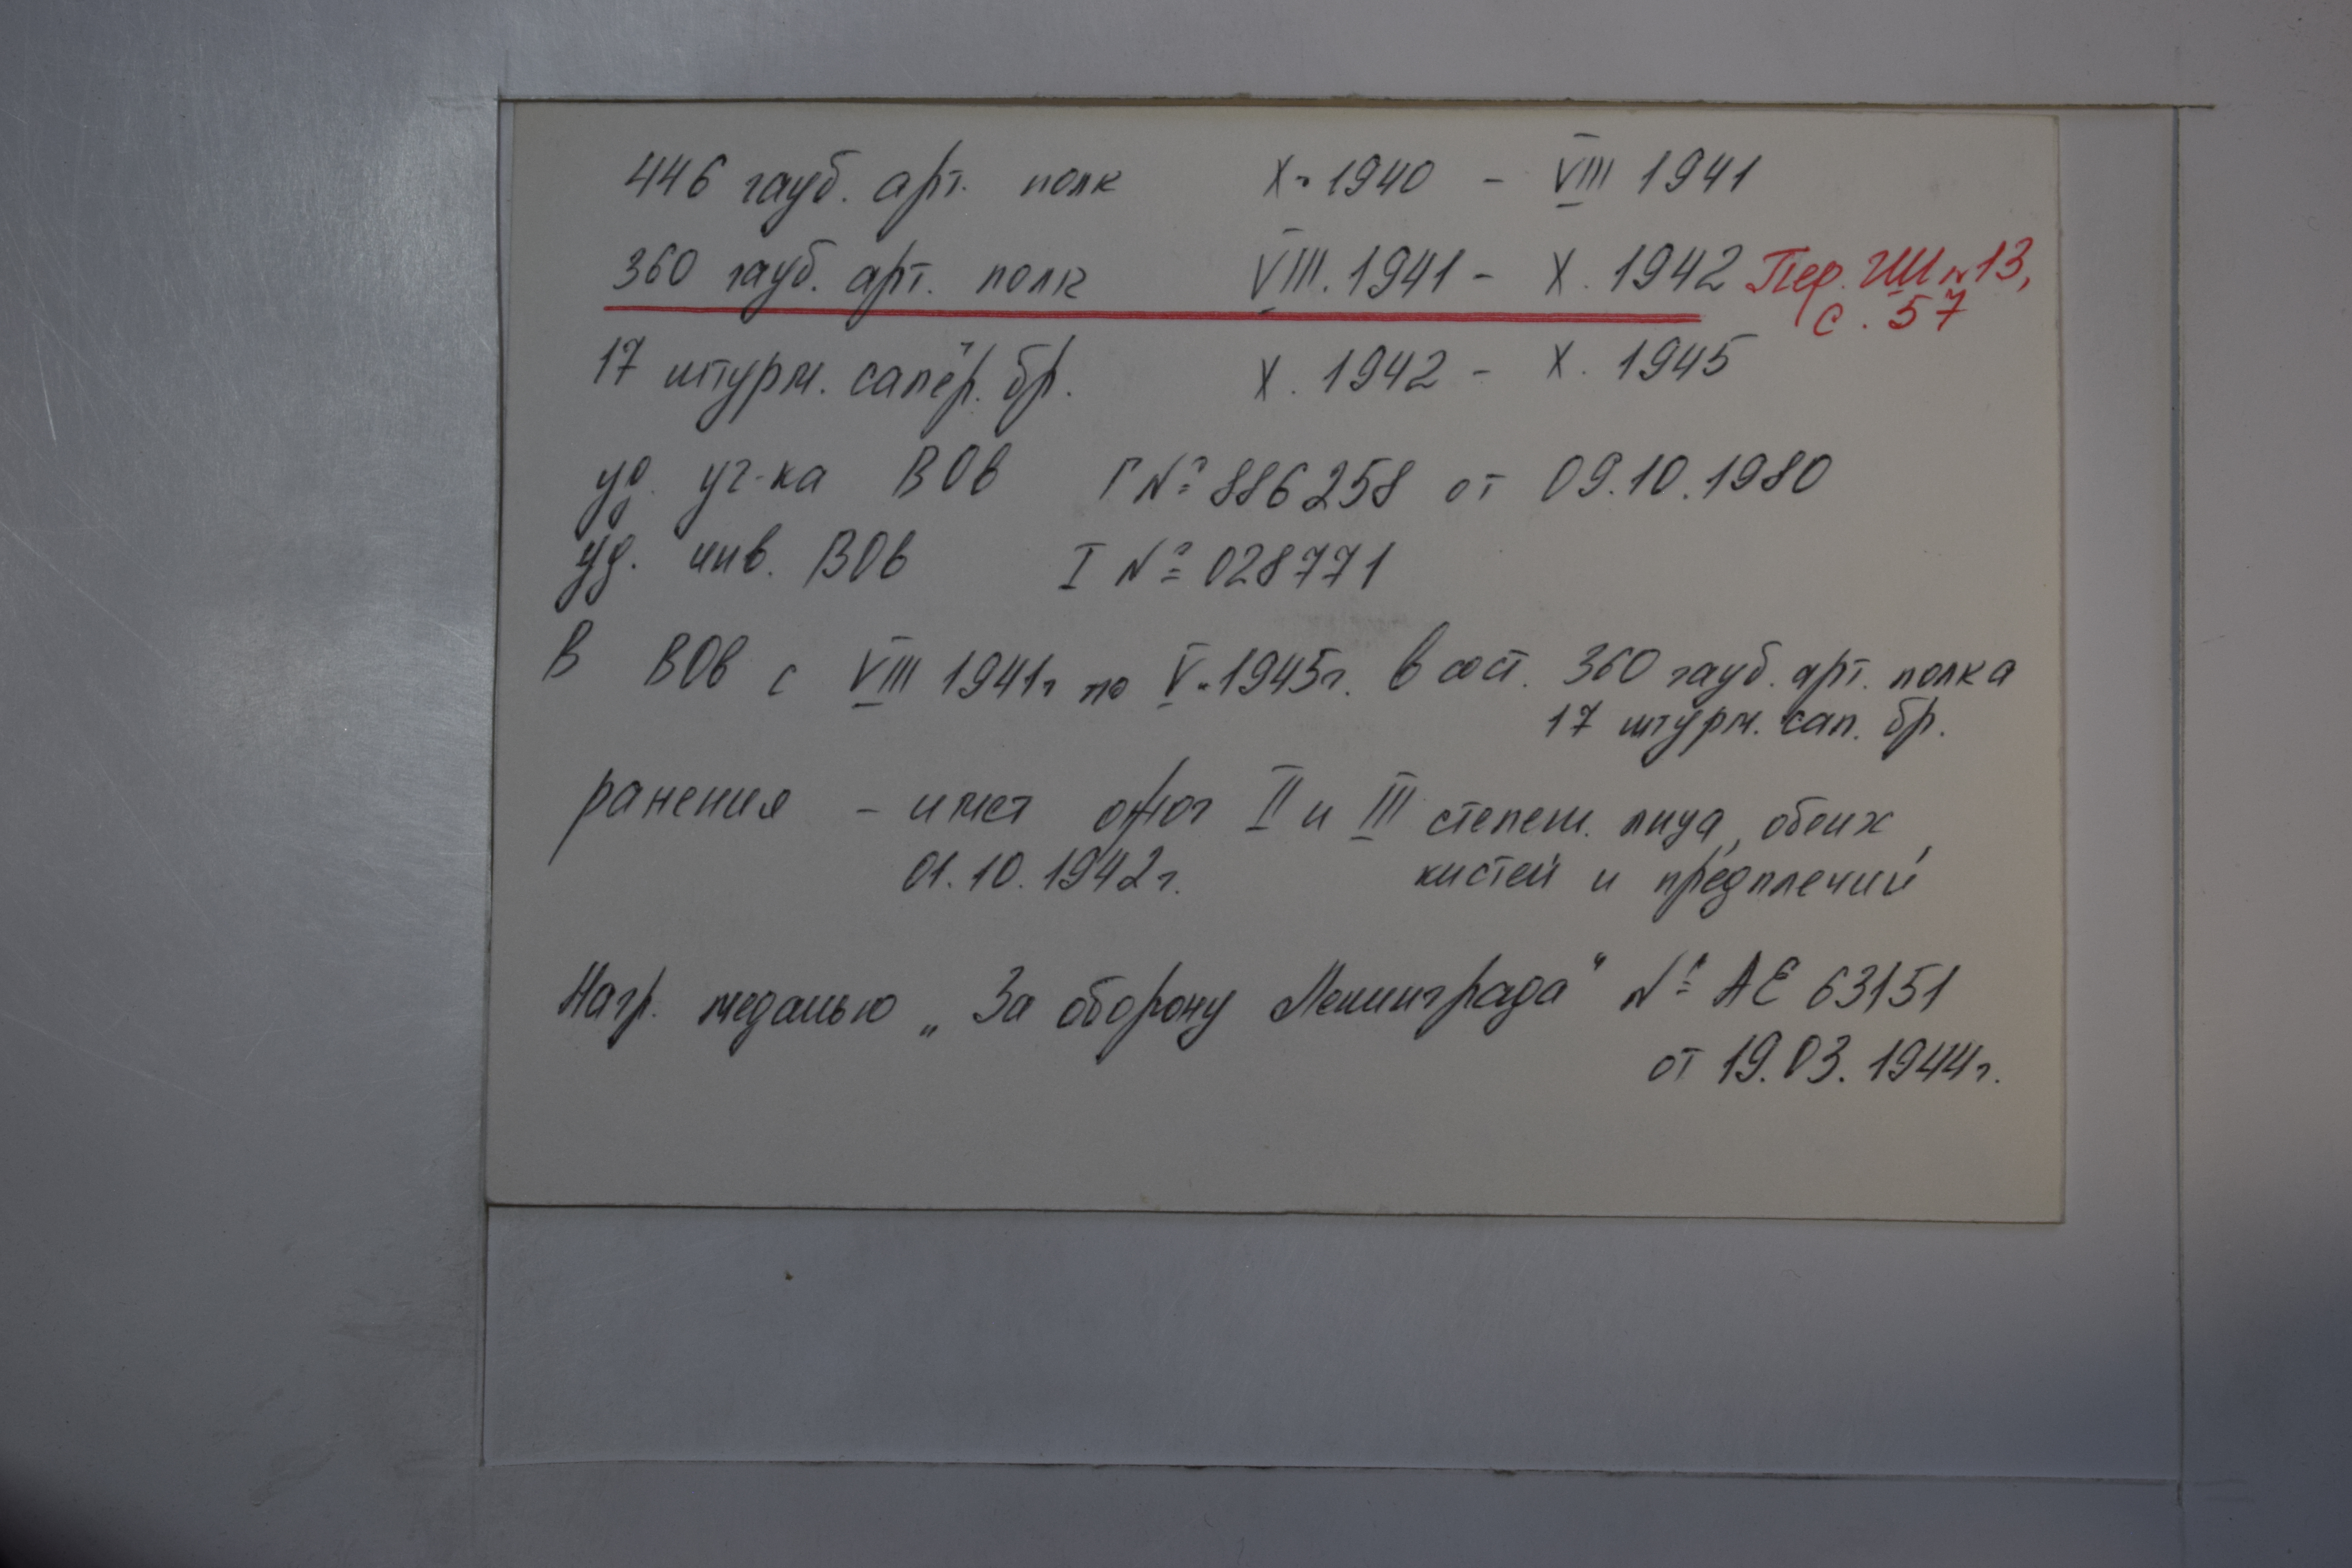 446 гауб. арт. полк X. 1940 - VIII 1941
360 гауб. арт. полк VIII. 1941 - X. 1942 Пер. ГШ №13,
с. 57
17 штурм. сапёр. бр. X. 1942 - X. 1945
уд. уч-ка ВОв Г № 886258 от 09.10.1980
уд. инв. ВОв I № 028771
В ВОв с VIII 1941г по V. 1945г. в сост. 360 гауб. арт. полка
17 штурм. сап. бр.
ранения - имел ожог II и III степени. лица, обеих
01.10.1942г. кистей и предплечий
Нагр. медалью „За оборону Ленинграда" № АЕ 63151
от 19.03.1944г.